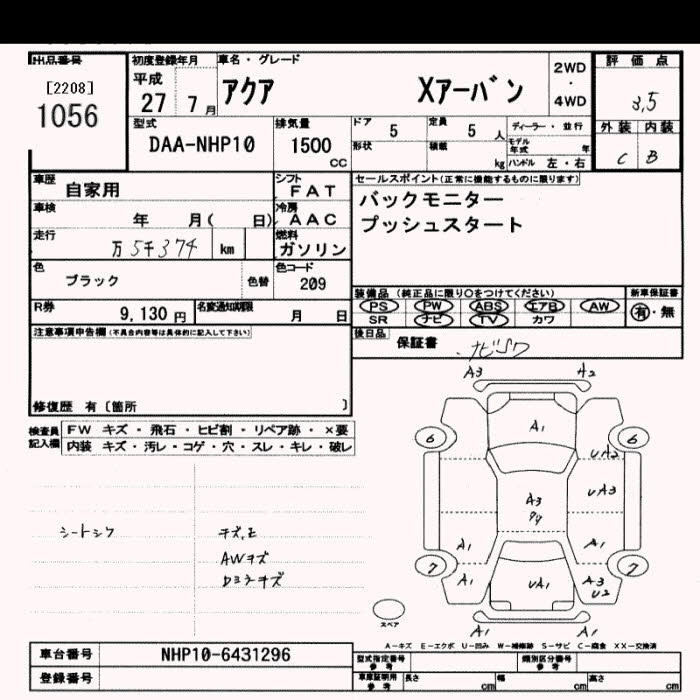 出品番号
[2208]
1056
初度登録年月
平成
27 7 月
車名・グレード
アクア Xアーバン
2WD
・
4WD
評価点
3.5
外装 内装
C B
型式
DAA-NHP10
排気量
1500
CC
ドア 5
定員 5 人
形状
積載 kg
ディーラー・並行
モデル年式 年
ハンドル 左・右
車歴
自家用
シフト
FAT
車検
年 月( 日)
冷房
AAC
走行
万 5千374 km
燃料
ガソリン
色
ブラック
色替
色コード
209
R券
9,130 円
名変通知期限
月 日
セールスポイント(正常に機能するものに限ります)
バックモニター
プッシュスタート
装備品 (純正品に限り○をつけてください)
PS PW ABS エアB AW
SR ナビ TV カワ
新車保証書
有・無
後日品
保証書
注意事項申告欄(不具合内容等は具体的に記入して下さい)
修復歴 有〔箇所 〕
検査員記入欄
FW キズ・飛石・ヒビ割・リペア跡・×要
内装 キズ・汚レ・コゲ・穴・スレ・キレ・破レ
シートシワ
AWキズ
A3 A2
A1
6 6
UA2
A3
UA3
A1 A1
7 7
A1 UA1 A3
U2
A1 A1
スペア
A-キズ E-エクボ U-凹み W-補修跡 S-サビ C-腐食 XX-交換済
車台番号
NHP10-6431296
登録番号
型式指定番号
参考
類別区分番号
参考
車庫証明用
参考
長さ cm
幅 cm
高さ cm